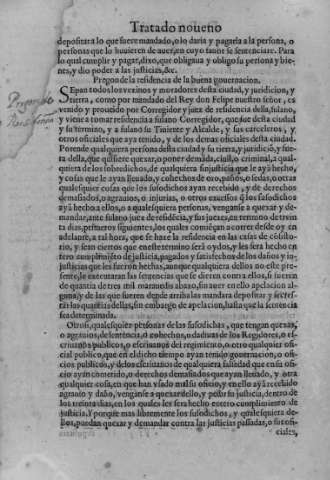 Tratado noueno
depositara lo que fuere mandado, o lo daria y pagaria a la persona, o
personas que lo huuieren de auer, en cuyo fauor se sentenciare. Para
lo qual cumplir y pagar, dixo, que obligaua y obligo su persona y bie-
nes, y dio poder a las justicias, &c.
Pregon de la residencia de la buena gouernacion.
SEpan todos los vezinos y moradores desta ciudad, y juridicion, y
tierra, como por mandado del Rey don Felipe nuestro señor, es
venido y proueido por Corregidor y juez de residencia della, fulano,
y viene a tomar residencia a fulano Corregidor, que fue desta ciudad
y su termino, y a fulano su Tiniente y Alcalde, y sus carceleros, y
otros oficiales que aya tenido, y de los demas oficiales desta ciudad.
Porende qualquiera persona desta ciudad y su tierra, y juridicion, y fue-
ra della, que quisiere quexar, o poner demãda, ciuil, o criminal, a qual-
quiera de los sobredichos, de qualquiera injusticia que le aya hecho,
y cosas que le aya lleuado, y cohechos de oro, paños, o sedas, o otras
qualesquier cosas que los susodichos ayan recebido, y de derechos
demasiados, o agrauios, o injurias, o otros excessos q̃ los susodichos
ayã hecho a ellos, o a qualesquiera personas, vengan se a quexar y de-
mandar, ante fulano juez de residẽcia, y sus juezes, en termino de treinta
dias, primeros siguientes, los quales comiẽçan a correr desde oy en
adelante, a tal hora, que se haze la residencia en las casas de cõsisto-
rio, y sean ciertos que en este termino serã oydos, y les sera hecho en
tero cumplimiẽto de justicia, pagados y satisfechos de los daños y in-
justicias que les fueron hechas, aunque qualquiera dellos no este pre-
sente, se executaran las sentencias que se dieren contra ellos, si fueren
de quantia de tres mil marauedis abaxo, sin auer en ello apelacion al-
guna, y de las que fueren dende arriba las mandara depositar y secres-
tar las quantias dellas, sin embargo de apelacion, hasta que la sentencia
sea determinada.
Otrosi, qualesquier personas de las susodichas, que tengan quexas,
o agrauios, de sentencias, o cohechos, o datiuas de los Regidores, o es-
criuanos publicos, o escriuanos del regimiento, o otro qualquier ofi-
cial publico, que en el dicho tiempo ayan tenido gouernacion, o ofi-
cios publicos, y de los escriuanos de qualquiera falsedad que en su ofi-
cio ayan cometido, o derechos demasiados que ayan lleuado, y otra
qualquier cosa, en que han vsado mal su oficio, y en ello ayã recebido
agrauio y daño, vengan se a quexar dello, y pedir su justicia, dentro de
los treinta dias, en los quales les sera hecho entero cumplimiento de
justicia. Y porque mas libremente los susodichos, y qualesquiera de-
llos, puedan quexar y demandar contra las justicias passadas, o sus ofi-
ciales,